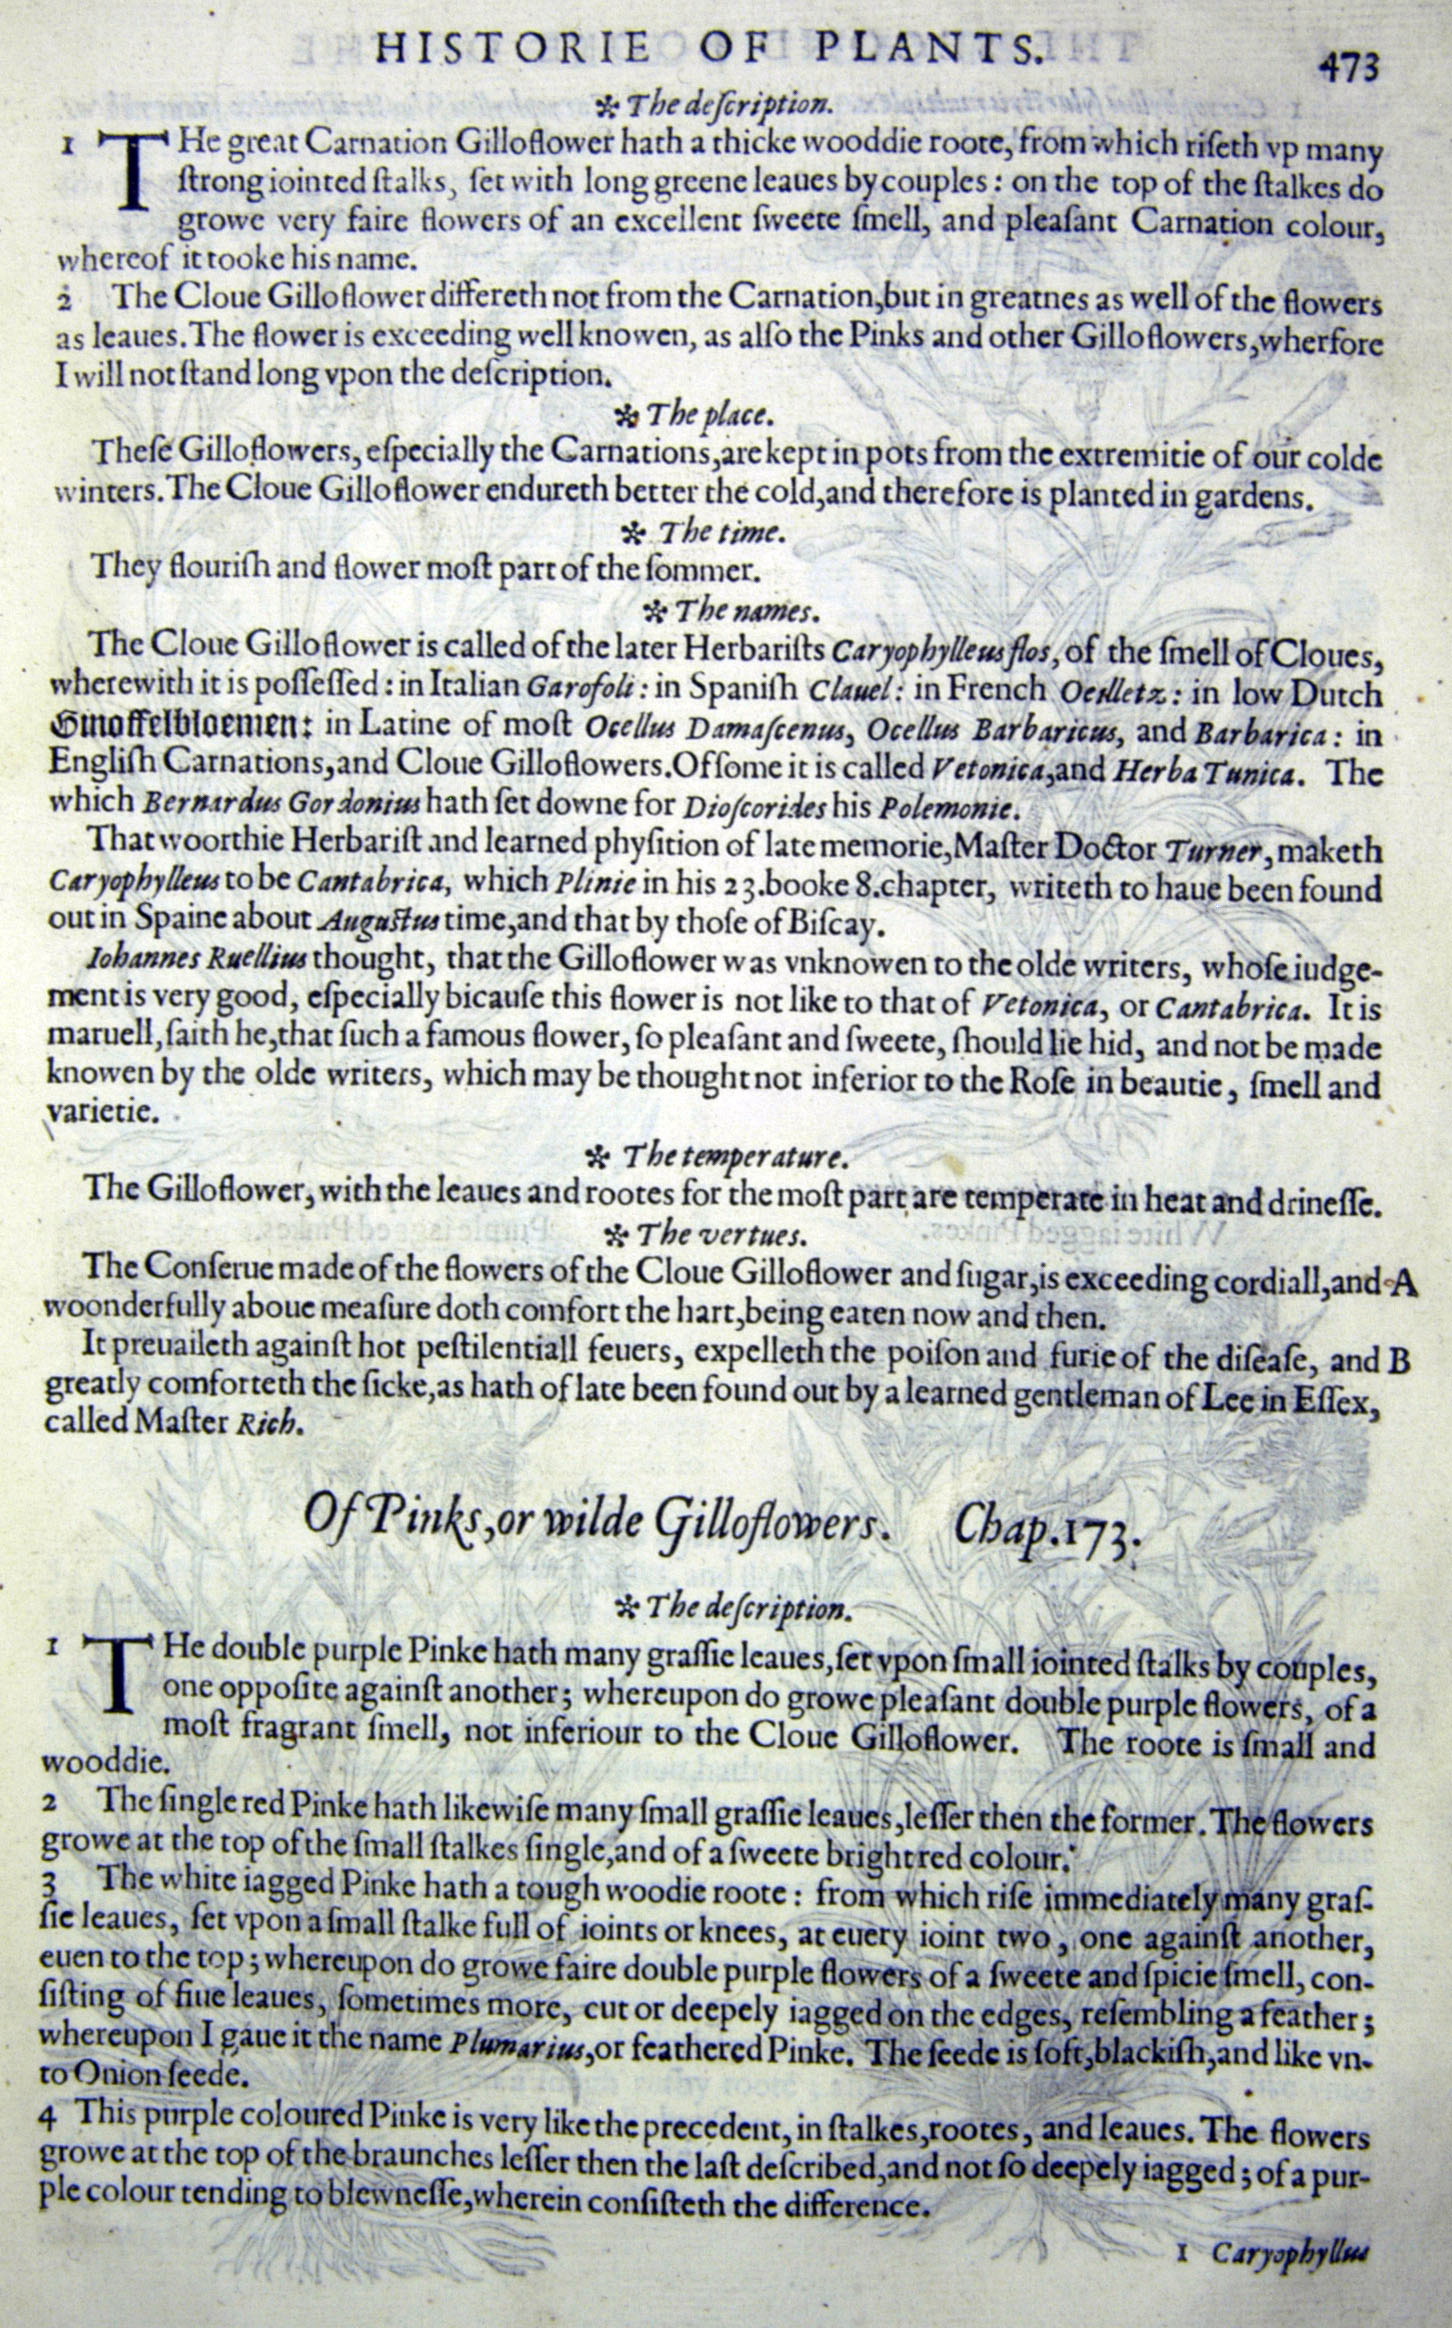 HISTORIE OF PLANTS.
473
❇ The deſcription.
1 THe great Carnation Gilloflower hath a thicke wooddie roote, from which riſeth vp many
ſtrong iointed ſtalks, ſet with long greene leaues by couples: on the top of the ſtalkes do
growe very faire flowers of an excellent ſweete ſmell, and pleaſant Carnation colour,
whereof it tooke his name.
2 The Cloue Gilloflower differeth not from the Carnation, but in greatnes as well of the flowers
as leaues. The flower is exceeding well knowen, as alſo the Pinks and other Gilloflowers, wherfore
I will not ſtand long vpon the deſcription.
❇ The place.
Theſe Gilloflowers, eſpecially the Carnations, are kept in pots from the extremitie of our colde
winters. The Cloue Gilloflower endureth better the cold, and therefore is planted in gardens.
❇ The time.
They flouriſh and flower moſt part of the ſommer.
❇ The names.
The Cloue Gilloflower is called of the later Herbariſts Caryophylleus flos, of the ſmell of Cloues,
wherewith it is poſſeſſed: in Italian Garofoli: in Spaniſh Clauel: in French Oeilletz: in low Dutch
Ginoffelbloemen: in Latine of moſt Ocellus Damaſcenus, Ocellus Barbaricus, and Barbarica: in
Engliſh Carnations, and Cloue Gilloflowers. Of ſome it is called Vetonica, and Herba Tunica. The
which Bernardus Gordonius hath ſet downe for Dioſcorides his Polemonie.
That woorthie Herbariſt and learned phyſition of late memorie, Maſter Doctor Turner, maketh
Caryophylleus to be Cantabrica, which Plinie in his 23. booke 8. chapter, writeth to haue been found
out in Spaine about Auguſtus time, and that by thoſe of Biſcay.
Iohannes Ruellius thought, that the Gilloflower was vnknowen to the olde writers, whoſe iudge-
ment is very good, eſpecially bicauſe this flower is not like to that of Vetonica, or Cantabrica. It is
maruell, ſaith he, that ſuch a famous flower, ſo pleaſant and ſweete, ſhould lie hid, and not be made
knowen by the olde writers, which may be thought not inferior to the Roſe in beautie, ſmell and
varietie.
❇ The temperature.
The Gilloflower, with the leaues and rootes for the moſt part are temperate in heat and drineſſe.
❇ The vertues.
The Conſerue made of the flowers of the Cloue Gilloflower and ſugar, is exceeding cordiall, and A
woonderfully aboue meaſure doth comfort the hart, being eaten now and then.
It preuaileth againſt hot peſtilentiall feuers, expelleth the poiſon and furie of the diſeaſe, and B
greatly comforteth the ſicke, as hath of late been found out by a learned gentleman of Lee in Eſſex,
called Maſter Rich.
Of Pinks, or wilde Gilloflowers. Chap. 173.
❇ The deſcription.
1 THe double purple Pinke hath many graſſie leaues, ſet vpon ſmall iointed ſtalks by couples,
one oppoſite againſt another; whereupon do growe pleaſant double purple flowers, of a
moſt fragrant ſmell, not inferiour to the Cloue Gilloflower. The roote is ſmall and
wooddie.
2 The ſingle red Pinke hath likewiſe many ſmall graſſie leaues, leſſer then the former. The flowers
growe at the top of the ſmall ſtalkes ſingle, and of a ſweete bright red colour.
3 The white iagged Pinke hath a tough woodie roote: from which riſe immediately many graſ-
ſie leaues, ſet vpon a ſmall ſtalke full of ioints or knees, at euery ioint two, one againſt another,
euen to the top; whereupon do growe faire double purple flowers of a ſweete and ſpicie ſmell, con-
ſiſting of fiue leaues, ſometimes more, cut or deepely iagged on the edges, reſembling a feather;
whereupon I gaue it the name Plumarius, or feathered Pinke. The ſeede is ſoft, blackiſh, and like vn-
to Onion ſeede.
4 This purple coloured Pinke is very like the precedent, in ſtalkes, rootes, and leaues. The flowers
growe at the top of the braunches leſſer then the laſt deſcribed, and not ſo deepely iagged; of a pur-
ple colour tending to blewneſſe, wherein conſiſteth the difference.
1 Caryophyllus